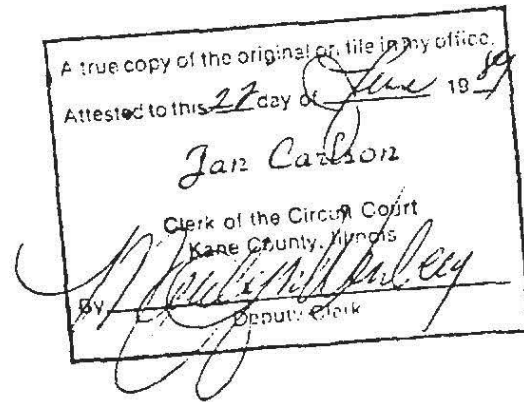 A true copy of the original on file in my office.
Attested to this 27 day of June 1989
Jan Carlson
Clerk of the Circuit Court
Kane County, Illinois
By
Deputy Clerk